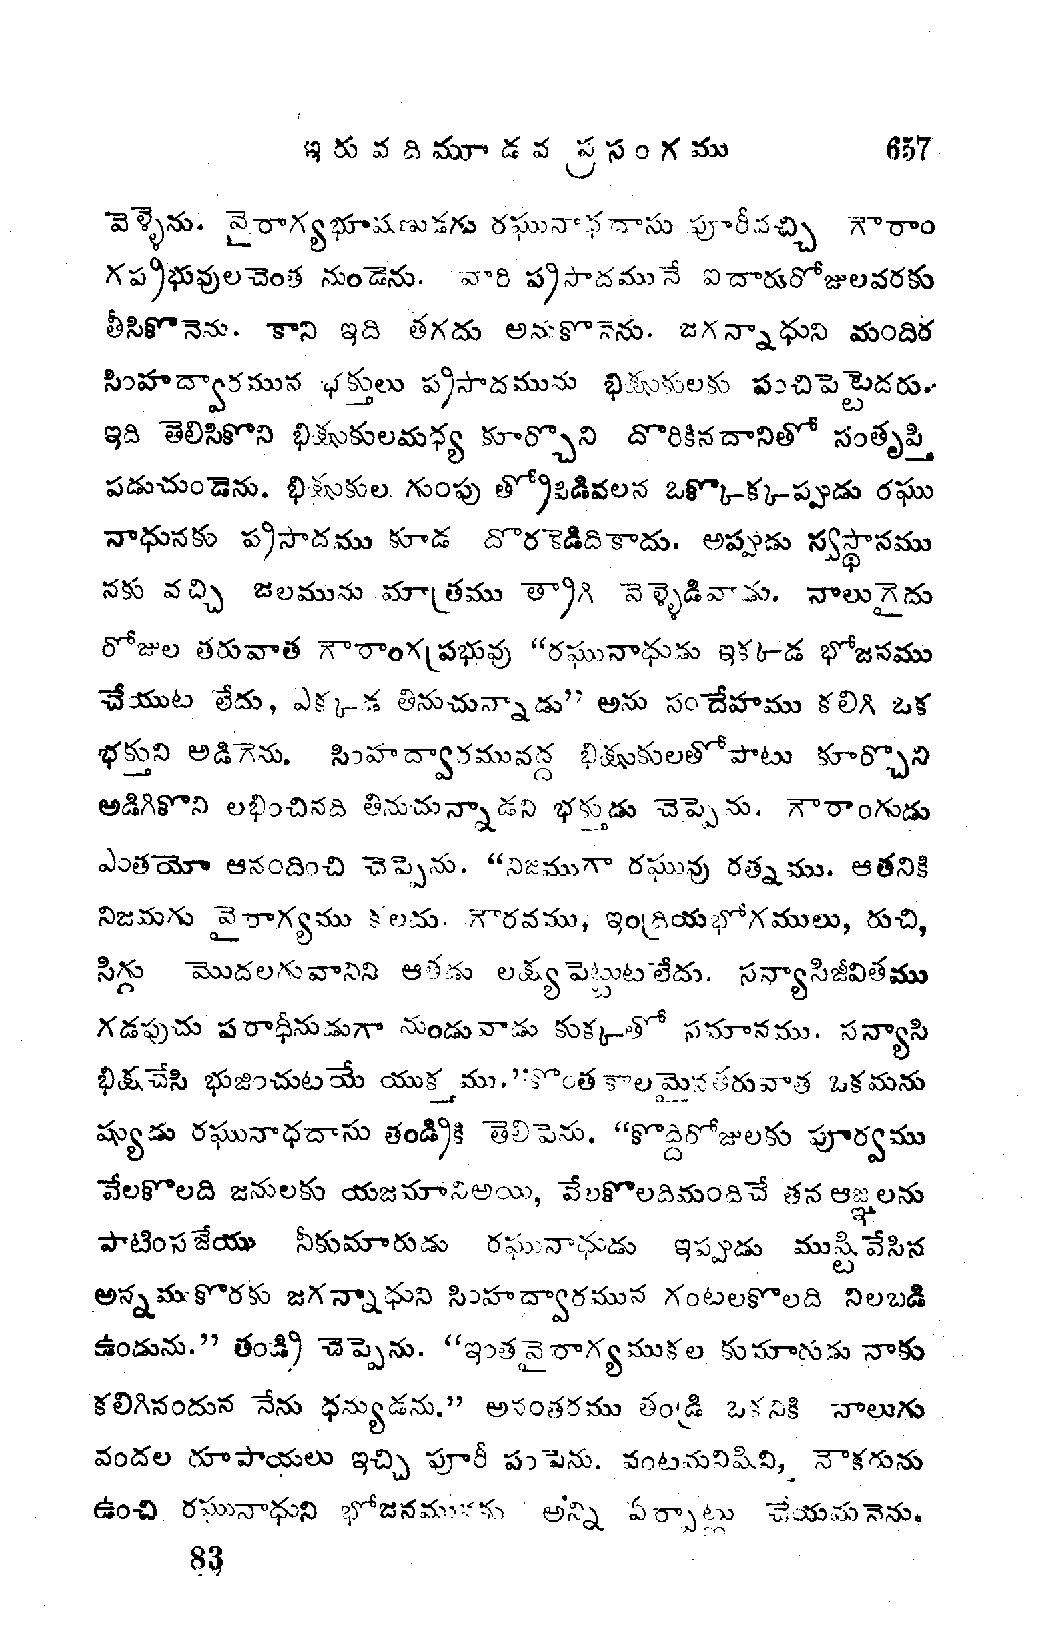 ఇరువదిమూడవ ప్రసంగము 657
వెళ్ళెను. వైరాగ్యభూషణుడగు రఘునాధదాసు పూరీవచ్చి గౌరాం
గప్రభువులచెంత నుండెను. వారి ప్రసాదమునే ఐదారురోజులవరకు
తీసికొనెను. కాని ఇది తగదు అనుకొనెను. జగన్నాధుని మందిర
సింహద్వారమున భక్తులు ప్రసాదమును భిక్షుకులకు పంచిపెట్టెదరు.
ఇది తెలిసికొని భిక్షుకులమధ్య కూర్చొని దొరికినదానితో సంతృప్తి
పడుచుండెను. భిక్షుకుల గుంపు త్రోపిడివలన ఒక్కొక్కప్పుడు రఘు
నాధునకు ప్రసాదము కూడ దొరకెడిదికాదు. అప్పుడు స్వస్థానము
నకు వచ్చి జలమును మాత్రము త్రాగి వెళ్ళెడివాడు. నాలుగైదు
రోజుల తరువాత గౌరాంగప్రభువు “రఘునాధుడు ఇక్కడ భోజనము
చేయుట లేదు, ఎక్కడ తినుచున్నాడు” అను సందేహము కలిగి ఒక
భక్తుని అడిగెను. సింహద్వారమువద్ద భిక్షుకులతోపాటు కూర్చొని
అడిగికొని లభించినది తినుచున్నాడని భక్తుడు చెప్పెను. గౌరాంగుడు
ఎంతయో ఆనందించి చెప్పెను. “నిజముగా రఘువు రత్నము. ఆతనికి
నిజమగు వైరాగ్యము కలదు. గౌరవము, ఇంద్రియభోగములు, రుచి,
సిగ్గు మొదలగువానిని ఆతడు లక్ష్యపెట్టుటలేదు. సన్యాసిజీవితము
గడపుచు పరాధీనుడుగా నుండువాడు కుక్కతో సమానము. సన్యాసి
భిక్షచేసి భుజించుటయే యుక్తము.” కొంతకాలమైనతరువాత ఒకమను
ష్యుడు రఘునాధదాసు తండ్రికి తెలిపెను. “కొద్దిరోజులకు పూర్వము
వేలకొలది జనులకు యజమానిఅయి, వేలకొలదిమందిచే తన ఆజ్ఞలను
పాటింపజేయు నీకుమారుడు రఘునాధుడు ఇప్పుడు ముష్టివేసిన
అన్నముకొరకు జగన్నాధుని సింహద్వారమున గంటలకొలది నిలబడి
ఉండును.” తండ్రి చెప్పెను. “ఇంతవైరాగ్యముకల కుమారుడు నాకు
కలిగినందున నేను ధన్యుడను.” అనంతరము తండ్రి ఒకనికి నాలుగు
వందల రూపాయలు ఇచ్చి పూరీ పంపెను. వంటమనిషిని, నౌకరును
ఉంచి రఘునాధుని భోజనమునకు అన్ని ఏర్పాట్లు చేయుమనెను.
83